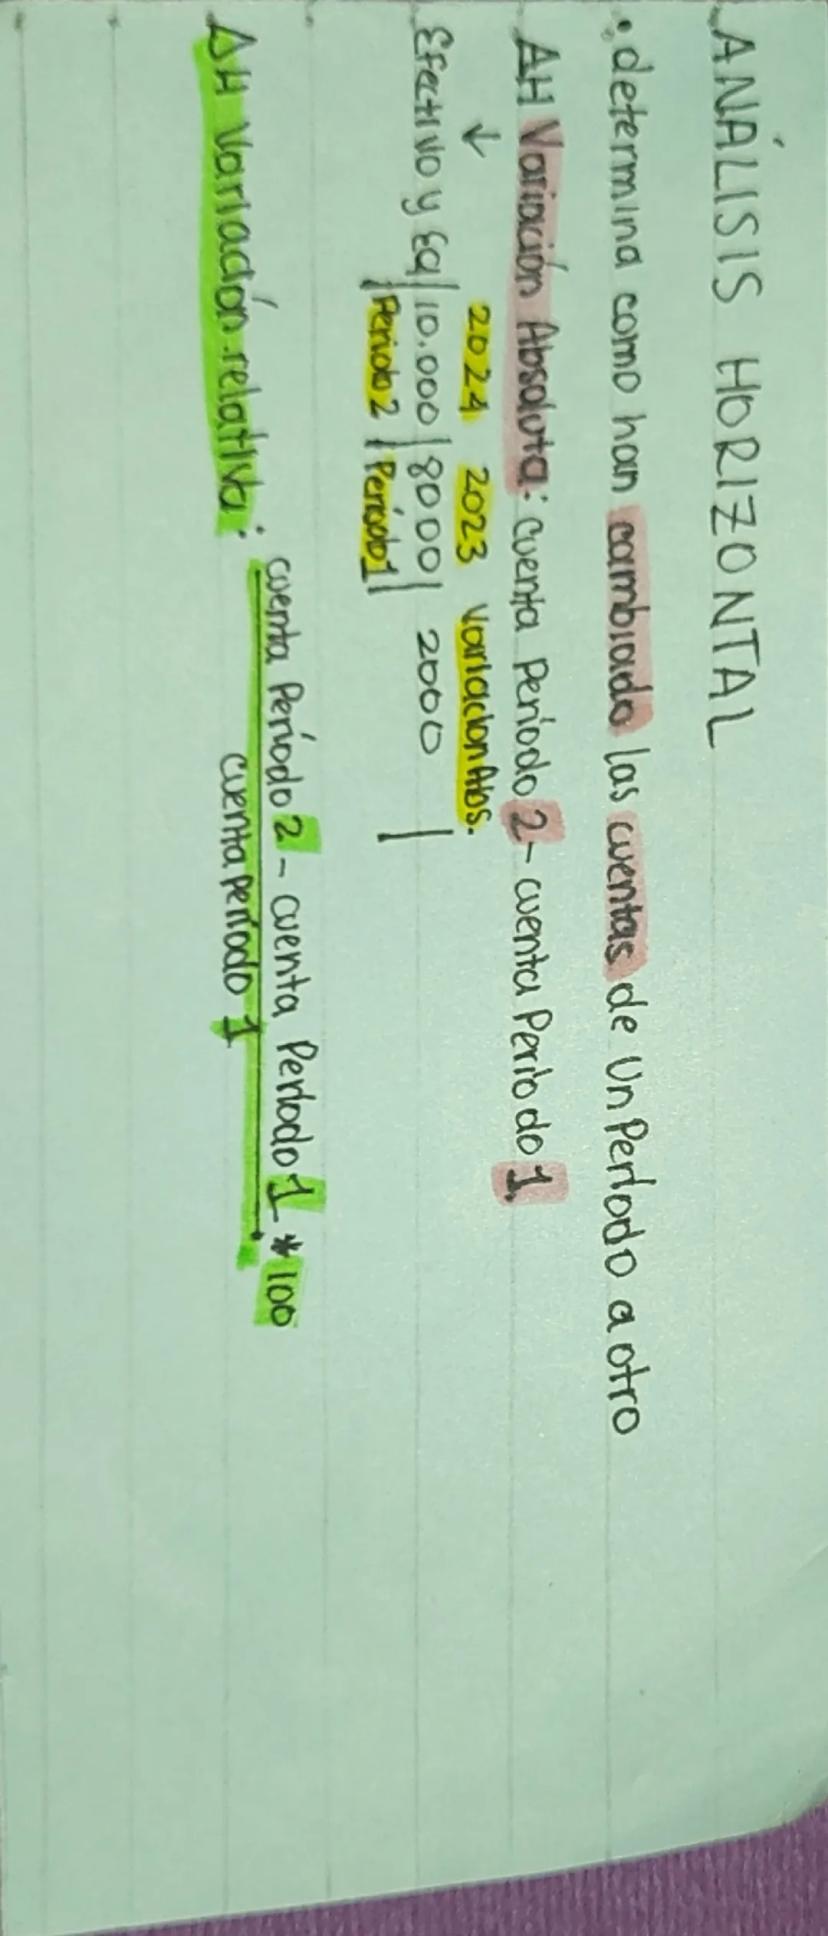 ANÁLISIS HORIZONTAL
• determina como han cambiado las cuentas de un Período a otro
AH Variación Absoluta: cuenta Período 2 - cuenta Período 1.
↓ 2024 2023 variacion Abs.
Efectivo y Eq | 10.000 | 8000 | 2000 |
| Periodo 2 | Período 1 |
AH variación relativa: cuenta Período 2 - cuenta Período 1 * 100
cuenta período 1